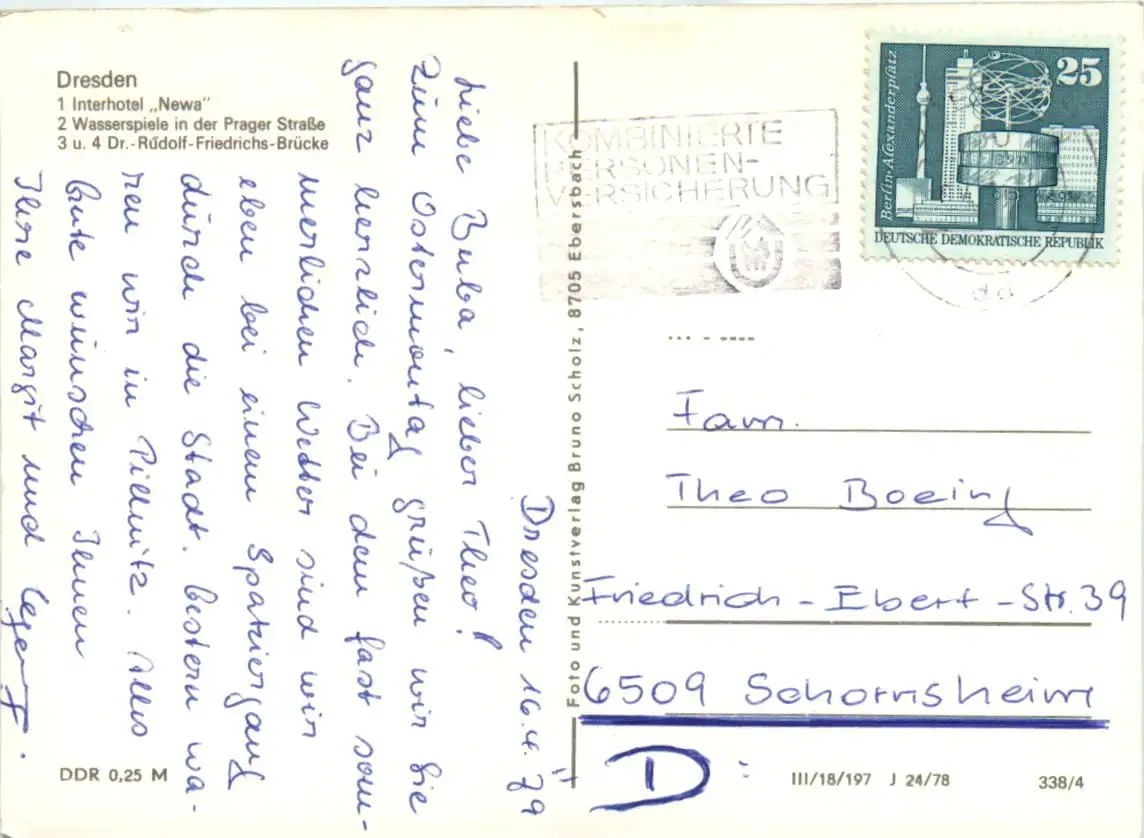 Dresden
1 Interhotel „Newa"
2 Wasserspiele in der Prager Straße
3 u. 4 Dr.-Rudolf-Friedrichs-Brücke
Dresden 16.4.79
Liebe Buba, lieber Theo!
Zum Ostermontag grüßen wir Sie
ganz herzlich. Bei dem fast som-
merlichen Wetter sind wir
eben bei einem Spaziergang
durch die Stadt. Gestern wa-
ren wir in Pillnitz. Alles
Gute wünschen Ihnen
Ihre Margit und
DDR 0,25 M
Foto und Kunstverlag Bruno Scholz, 8705 Ebersbach
KOMBINIERTE
PERSONEN-
VERSICHERUNG
Berlin-Alexanderplatz
25
DEUTSCHE DEMOKRATISCHE REPUBLIK
Fam.
Theo Boeing
Friedrich-Ebert-Str. 39
6509 Schornsheim
D
III/18/197 J 24/78
338/4